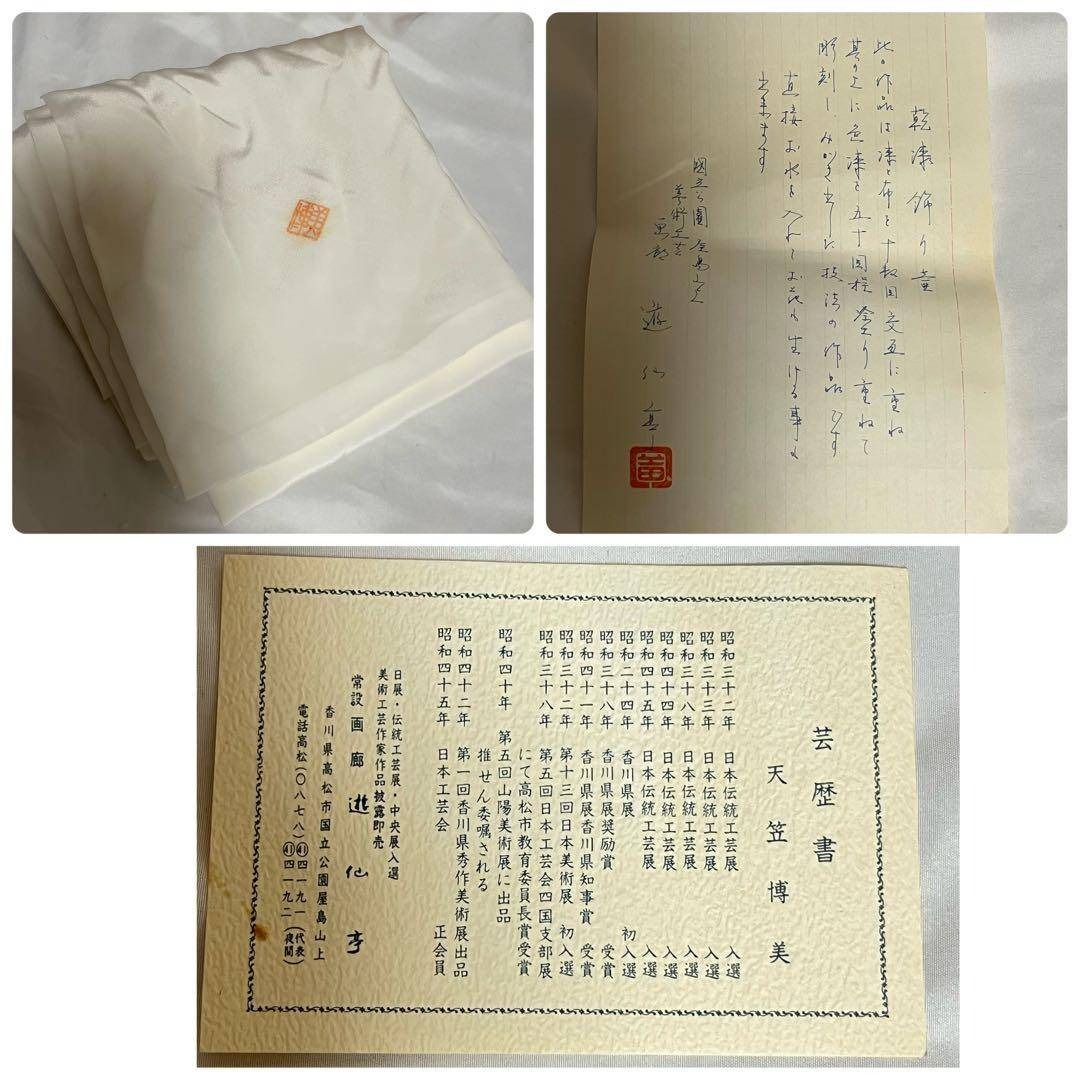 乾漆飾り壷
此の作品は漆と布を十数回交互に重ね
其の上に色漆を五十回程塗り重ねて
彫刻し、みがき出した技法の作品です
直接お水を入れてお花も生ける事も
出来ます
國立公園屋島山上
美術工芸
画部 遊仙亭
芸歴書
天笠博美
昭和三十二年 日本伝統工芸展 入選
昭和三十三年 日本伝統工芸展 入選
昭和三十八年 日本伝統工芸展 入選
昭和四十四年 日本伝統工芸展 入選
昭和四十五年 日本伝統工芸展 入選
昭和二十四年 香川県展 初入選
昭和三十八年 香川県展奨励賞 受賞
昭和四十一年 香川県展香川県知事賞 受賞
昭和三十二年 第十三回日本美術展 初入選
昭和三十八年 第五回日本工芸会四国支部展
にて高松市教育委員長賞受賞
昭和四十年 第五回山陽美術展に出品
推せん委嘱される
昭和四十二年 第一回香川県秀作美術展出品
昭和四十五年 日本工芸会 正会員
日展・伝統工芸展・中央展入選
美術工芸作家作品披露即売
常設画廊 遊仙亭
香川県高松市国立公園屋島山上
電話高松(〇八七八)㊶四一九一(代表)
㊶四一九二(夜間)